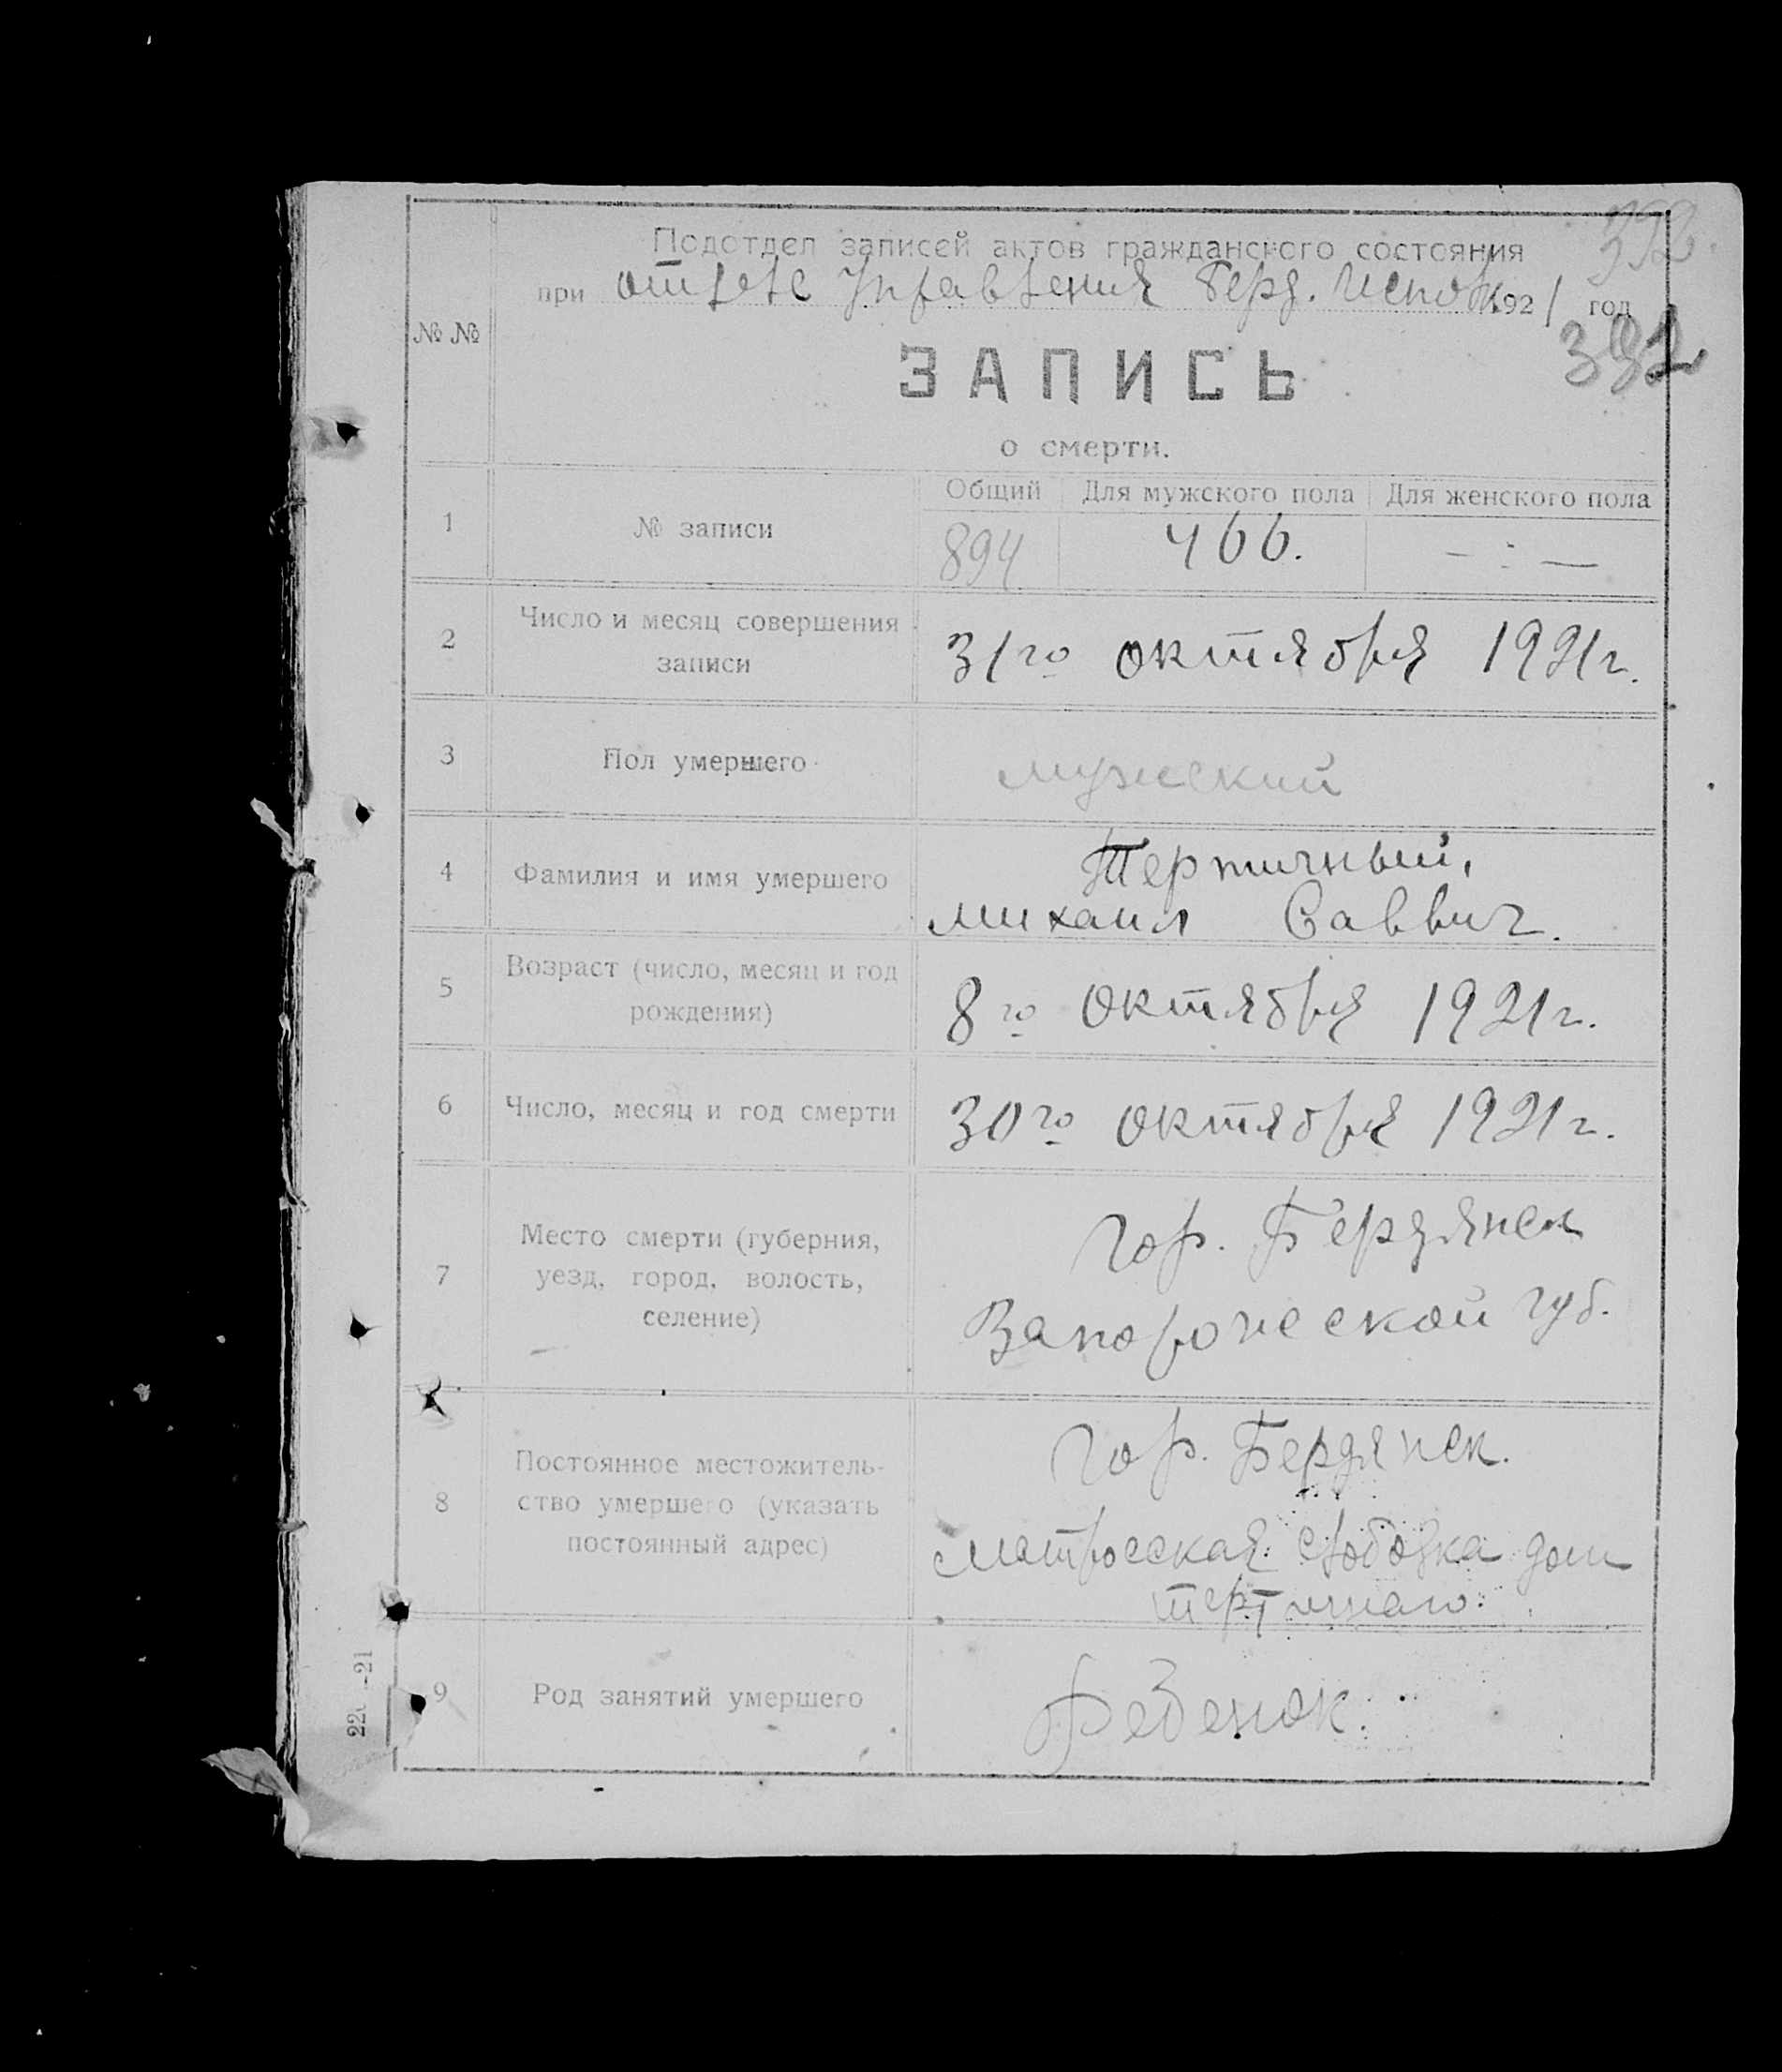 392
Подотдел записей актов гражданского состояния
при отделе Управления Берд. Исполк. 1921 год
392
№ №
ЗАПИСЬ
о смерти.
1 № записи
Общий Для мужского пола Для женского пола
894 466. — : —
2 Число и месяц совершения записи
31го октября 1921 г.
3 Пол умершего
мужеский
4 Фамилия и имя умершего
Терпичный,
михаил Саввич.
5 Возраст (число, месяц и год рождения)
8го октября 1921 г.
6 Число, месяц и год смерти
30го октября 1921 г.
7 Место смерти (губерния,
уезд, город, волость,
селение)
гор. Бердянск
Запорожеской губ.
8 Постоянное местожитель-
ство умершего (указать
постоянный адрес)
гор. Бердянск.
матросская слободка дом
9 Род занятий умершего
ребенок.